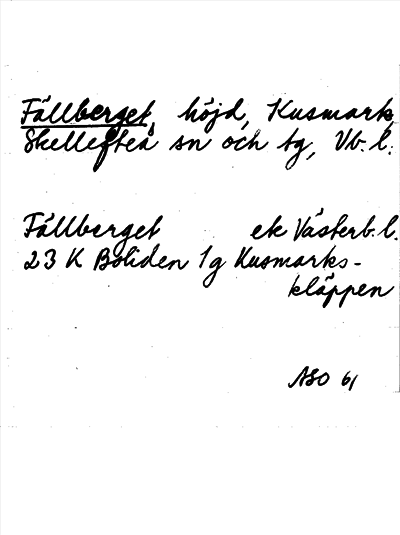 Fällberget, höjd, Kusmark
Skellefteå sn och tg, Vb. l.
Fällberget ek Västerb. l.
23 K Boliden 1g Kusmarks-
kläppen
ASO 61